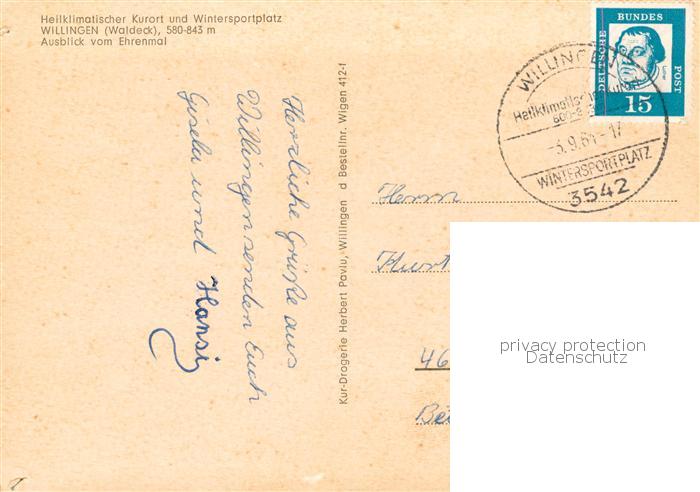 Heilklimatischer Kurort und Wintersportplatz
WILLINGEN (Waldeck), 580-843 m
Ausblick vom Ehrenmal
Herzliche Grüße aus
Willingen senden Euch
Gisela und Hansi
Kur-Drogerie Herbert Pavlu, Willingen d Bestellnr. Wigen 412-f
DEUTSCHE
BUNDES
POST
15
WILLINGEN
Heilklimatischer Kurort
WINTERSPORTPLATZ
3542
Herrn
Kurt
46
privacy protection
Datenschutz